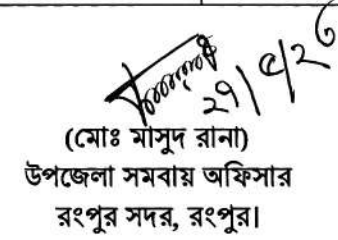 ২৭/৫/২৬
(মোঃ মাসুদ রানা)
উপজেলা সমবায় অফিসার
রংপুর সদর, রংপুর।